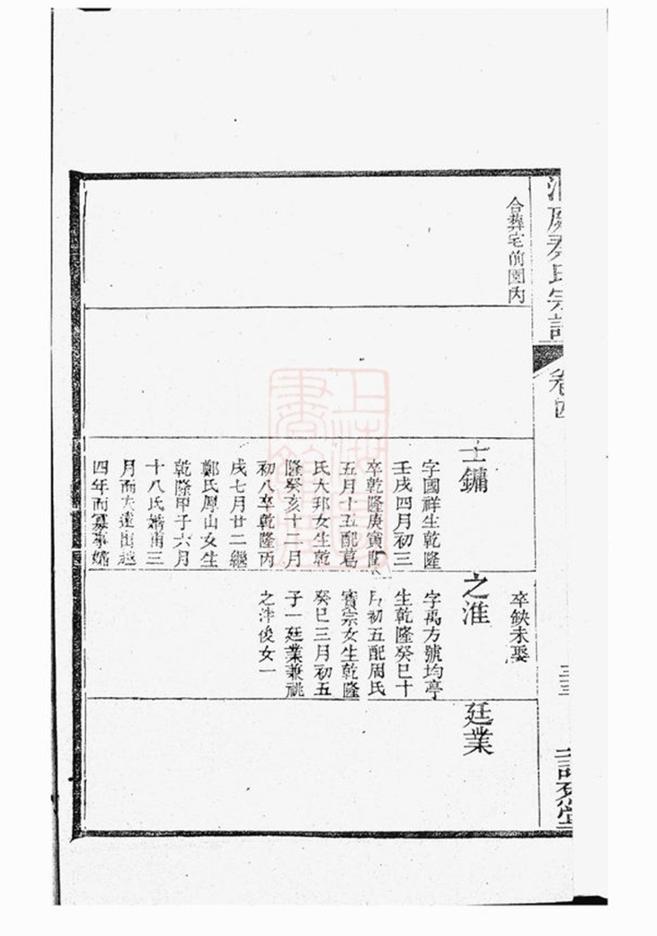 秦氏宗譜
卷四
合葬宅前園內
士鏞
字國祥生乾隆
壬戌四月初三
卒乾隆庚寅閏
五月十五配葛
氏大邦女生乾
隆癸亥十二月
初八卒乾隆丙
戌七月廿二繼
鄭氏厚山女生
乾隆甲子六月
十八氏婚甫三
月而夫遠出越
四年而寡事孀
卒缺未娶
之淮
字禹方號均亭
生乾隆癸巳十
月初五配周氏
寶宗女生乾隆
癸巳三月初五
子一廷業兼祧
之洋後女一
廷業